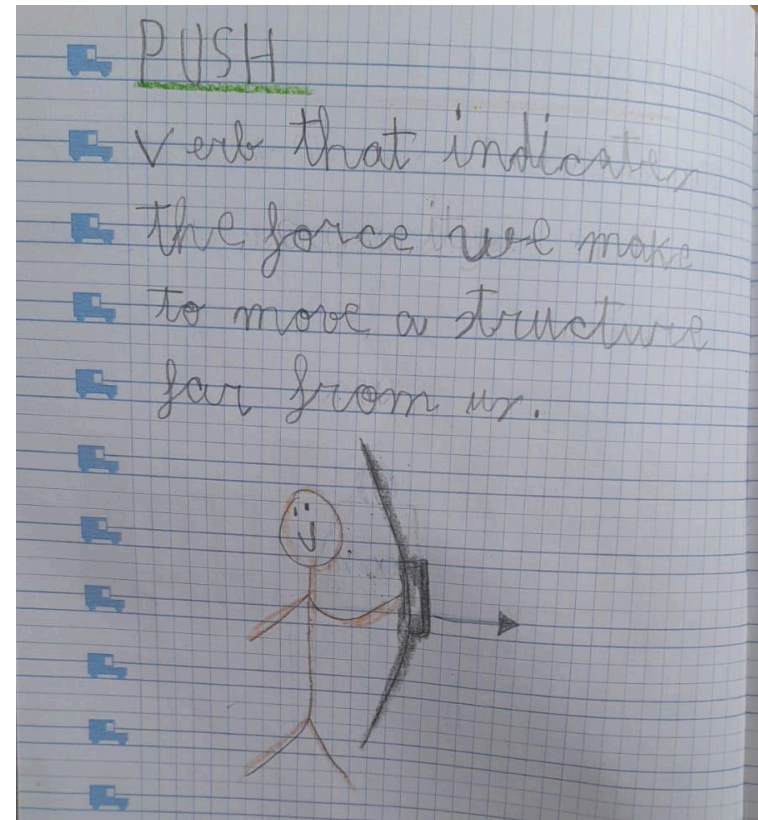 PUSH
Verb that indicates
the force we make
to move a structure
far from us.